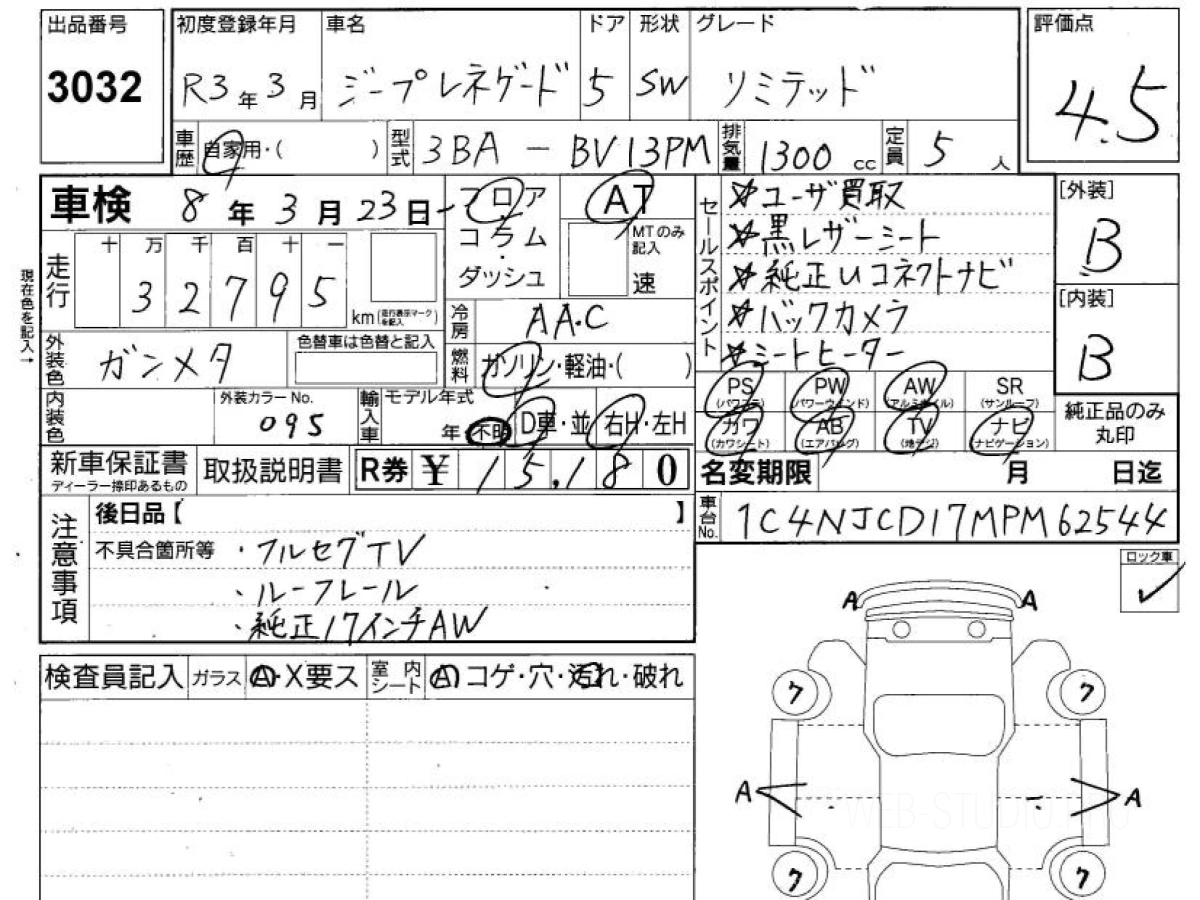 出品番号 初度登録年月 車名 ドア 形状 グレード 評価点
3032 R3年3月 ジープレネゲード 5 SW リミテッド 4.5
車歴 自家用・( ) 型式 3BA - BV13PM 排気量 1300 cc 定員 5人
車検 8年3月23日 フロア AT セールスポイント ☆ユーザ買取 [外装]
コラム MTのみ記入 ☆黒レザーシート B
走行 十 万 千 百 十 一 ダッシュ 速 ☆純正Uコネクトナビ
現在色を記入→ 32795 km (走行表示マークを記入) 冷房 AA.C ☆バックカメラ [内装]
外装色 ガンメタ 色替車は色替と記入 燃料 ガソリン・軽油・( ) ☆シートヒーター B
PS (パワステ) PW (パワーウインド) AW (アルミホイル) SR (サンルーフ)
内装色 外装カラーNo. 095 輸入車 モデル年式 年・不明 D車・並 右H・左H カワ (カワシート) AB (エアバッグ) TV (地デジ) ナビ (ナビゲーション) 純正品のみ丸印
新車保証書 ディーラー捺印あるもの 取扱説明書 R券 ¥15,180 名変期限 月 日迄
注意事項 後日品【 】 車台No. 1C4NJCD17MPM62544
不具合箇所等 ・フルセグTV ロック車 ✓
・ルーフレール
・純正17インチAW A A
検査員記入 ガラス A・X要ス 室内シート A コゲ・穴・汚れ・破れ
ク ク
A A
WEB-STUDIO.PRO
ク ク